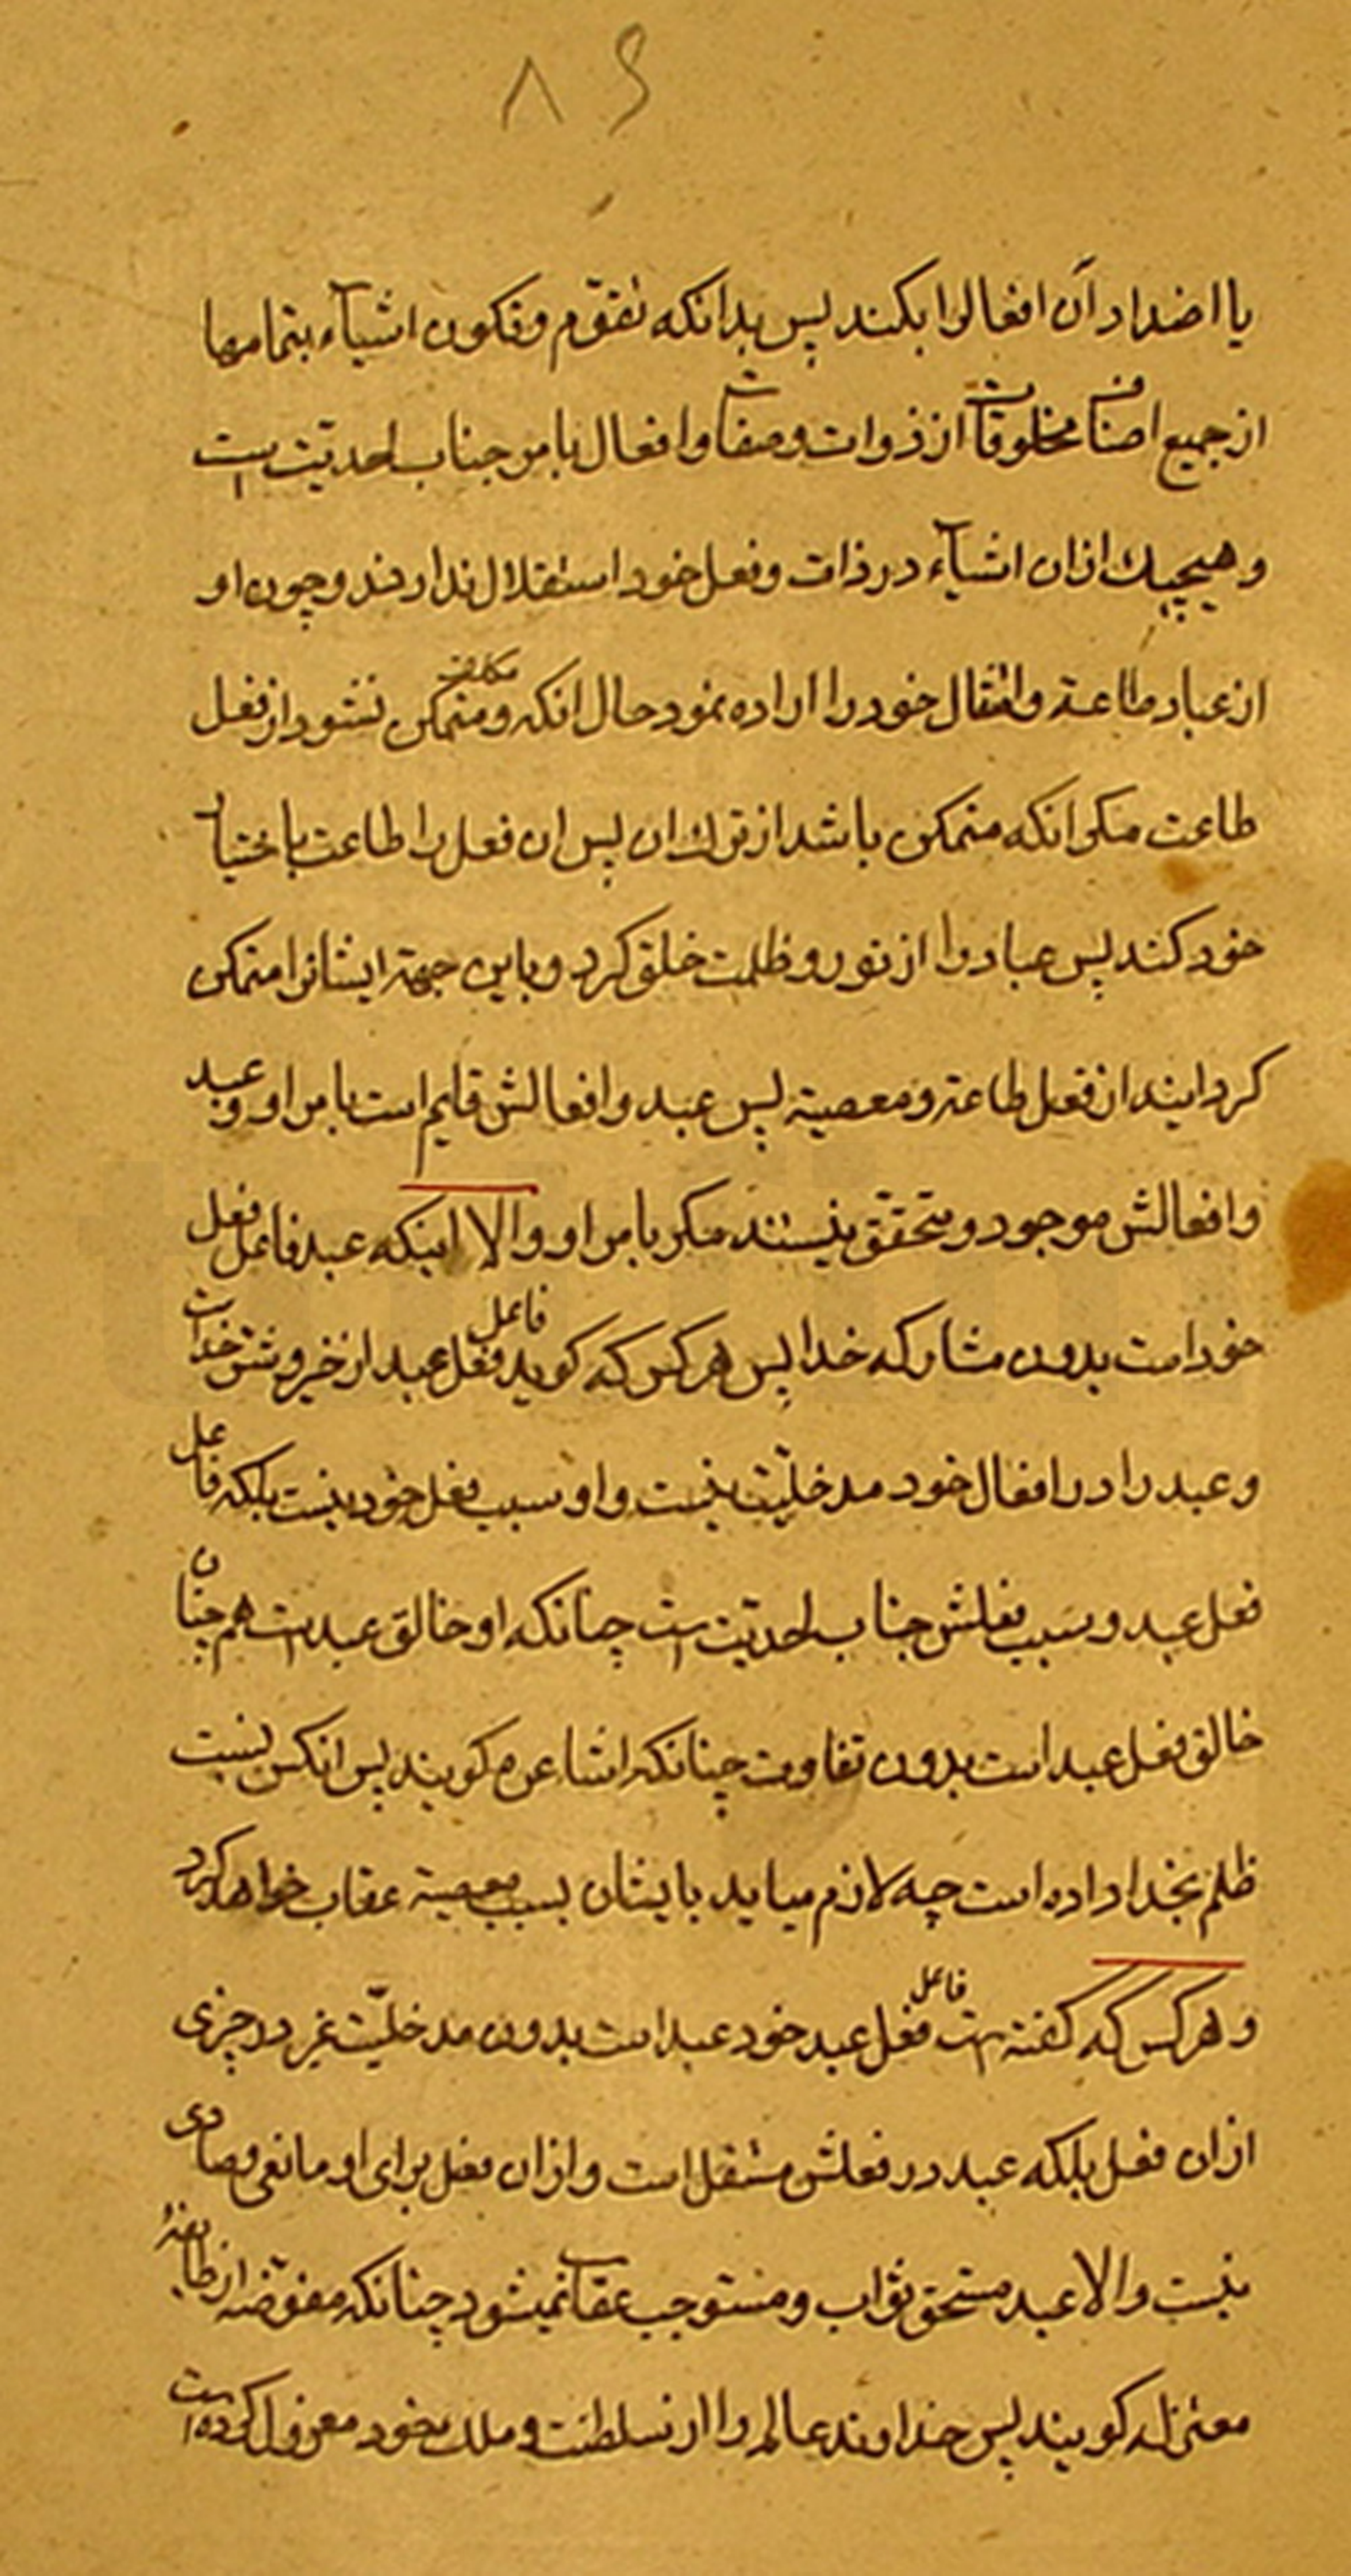 ۸۶
یا اضداد آن افعالرا بکند پس بدانکه تقوّم و تکون اشیآء بتمامها
از جمیع اصناف مخلوقات از ذوات و صفات و افعال بامر جناب احدیّت است
و هیچیك ازان اشیآء در ذات و فعل خود استقلال ندارند و چون او
از عباد طاعة و امتثال خود را اراده نمود حال انکه مکلف و متمکن نشود از فعل
طاعت مکر انکه متمکن باشد از ترك ان پس ان فعل را طاعت باختیار
خود کند پس عباد را از نور و ظلمت خلق کرد و باین جهة ایشانرا متمکن
کردانید از فعل طاعة و معصیة پس عبد و افعالش قایم است بامر او و عبد
و افعالش موجود و متحقق نیستند مکر بامر او و الا اینکه عبد فاعل فعل
خود است بدون مشارکه خدا پس هر کس که کوید فاعل فعل عبد از خیر و شر خداست
و عبد را در افعال خود مدخلیّت نیست و او سبب فعل خود نیست بلکه فاعل
فعل عبد و سبب فعلش جناب احدیّت است چنانکه او خالق عبد است هم چنان
خالق فعل عبد است بدون تفاوت چنانکه اشاعره کویند پس انکس نسبت
ظلم بخدا داده است چه لازم میاید بایشان بسبب معصیة عقاب خواهد کرد
و هر کس که کفته است فاعل فعل عبد خود عبد است بدون مدخلیّت غیر در چیزی
ازان فعل بلکه عبد در فعلش مستقل است و ازان فعل برای او مانعی و صادی
نیست و الا عبد مستحق ثواب و مستوجب عقاب نمیشود چنانکه مفوّضه از طایفهٔ
معتزله کویند پس خداوند عالم را از سلطنت و ملك خود معزول کرده است